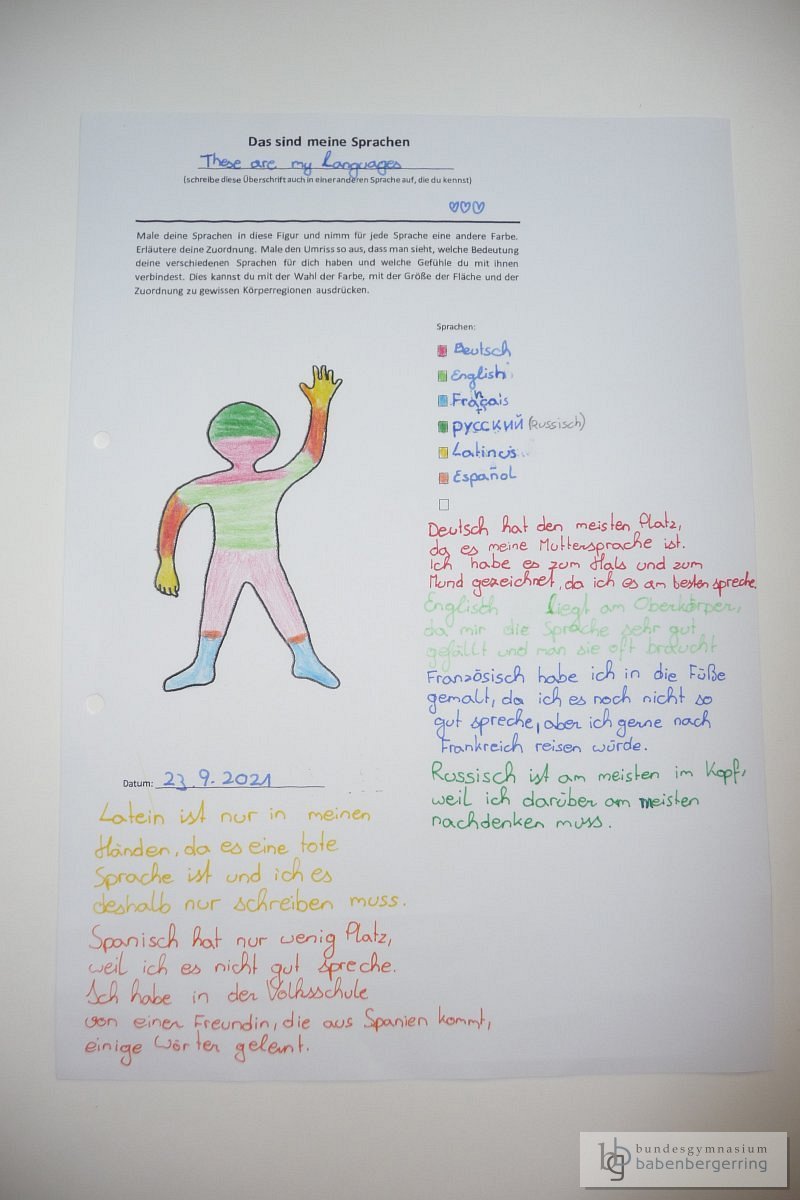 Das sind meine Sprachen
These are my Languages
(schreibe diese Überschrift auch in einer anderen Sprache auf, die du kennst)
Male deine Sprachen in diese Figur und nimm für jede Sprache eine andere Farbe.
Erläutere deine Zuordnung. Male den Umriss so aus, dass man sieht, welche Bedeutung
deine verschiedenen Sprachen für dich haben und welche Gefühle du mit ihnen
verbindest. Dies kannst du mit der Wahl der Farbe, mit der Größe der Fläche und der
Zuordnung zu gewissen Körperregionen ausdrücken.
Sprachen:
Deutsch
English
Français
русский (Russisch)
Español
Deutsch hat den meisten Platz,
da es meine Muttersprache ist.
Ich habe es zum Hals und zum
Mund gezeichnet, da ich es am besten spreche.
Englisch liegt am Oberkörper,
da mir die Sprache sehr gut
gefällt und man sie oft braucht
Französisch habe ich in die Füße
gemalt, da ich es noch nicht so
gut spreche, aber ich gerne nach
Frankreich reisen würde.
Russisch ist am meisten im Kopf,
weil ich darüber am meisten
nachdenken muss.
Datum: 23.9.2021
Latein ist nur in meinen
Händen, da es eine tote
Sprache ist und ich es
deshalb nur schreiben muss.
Spanisch hat nur wenig Platz,
weil ich es nicht gut spreche.
Ich habe in der Volksschule
von einer Freundin, die aus Spanien kommt,
einige Wörter gelernt.
bundesgymnasium
babenbergerring